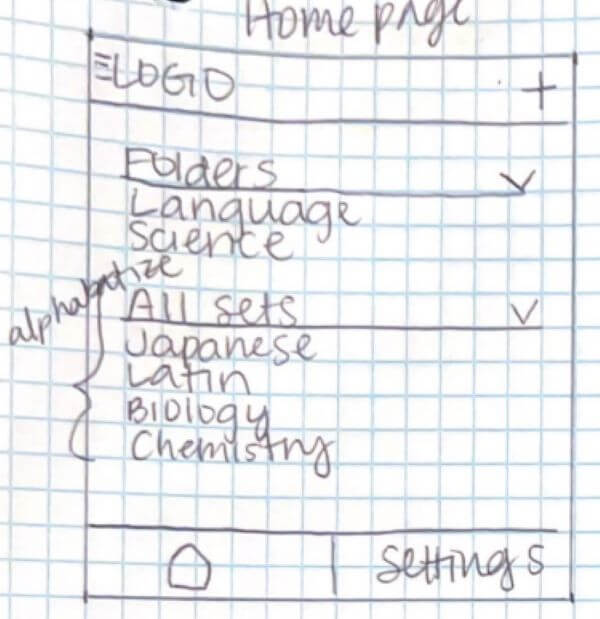 Home page
LOGO +
Folders
Language
Science
alphabetize
All sets
Japanese
Latin
Biology
Chemistry
Settings